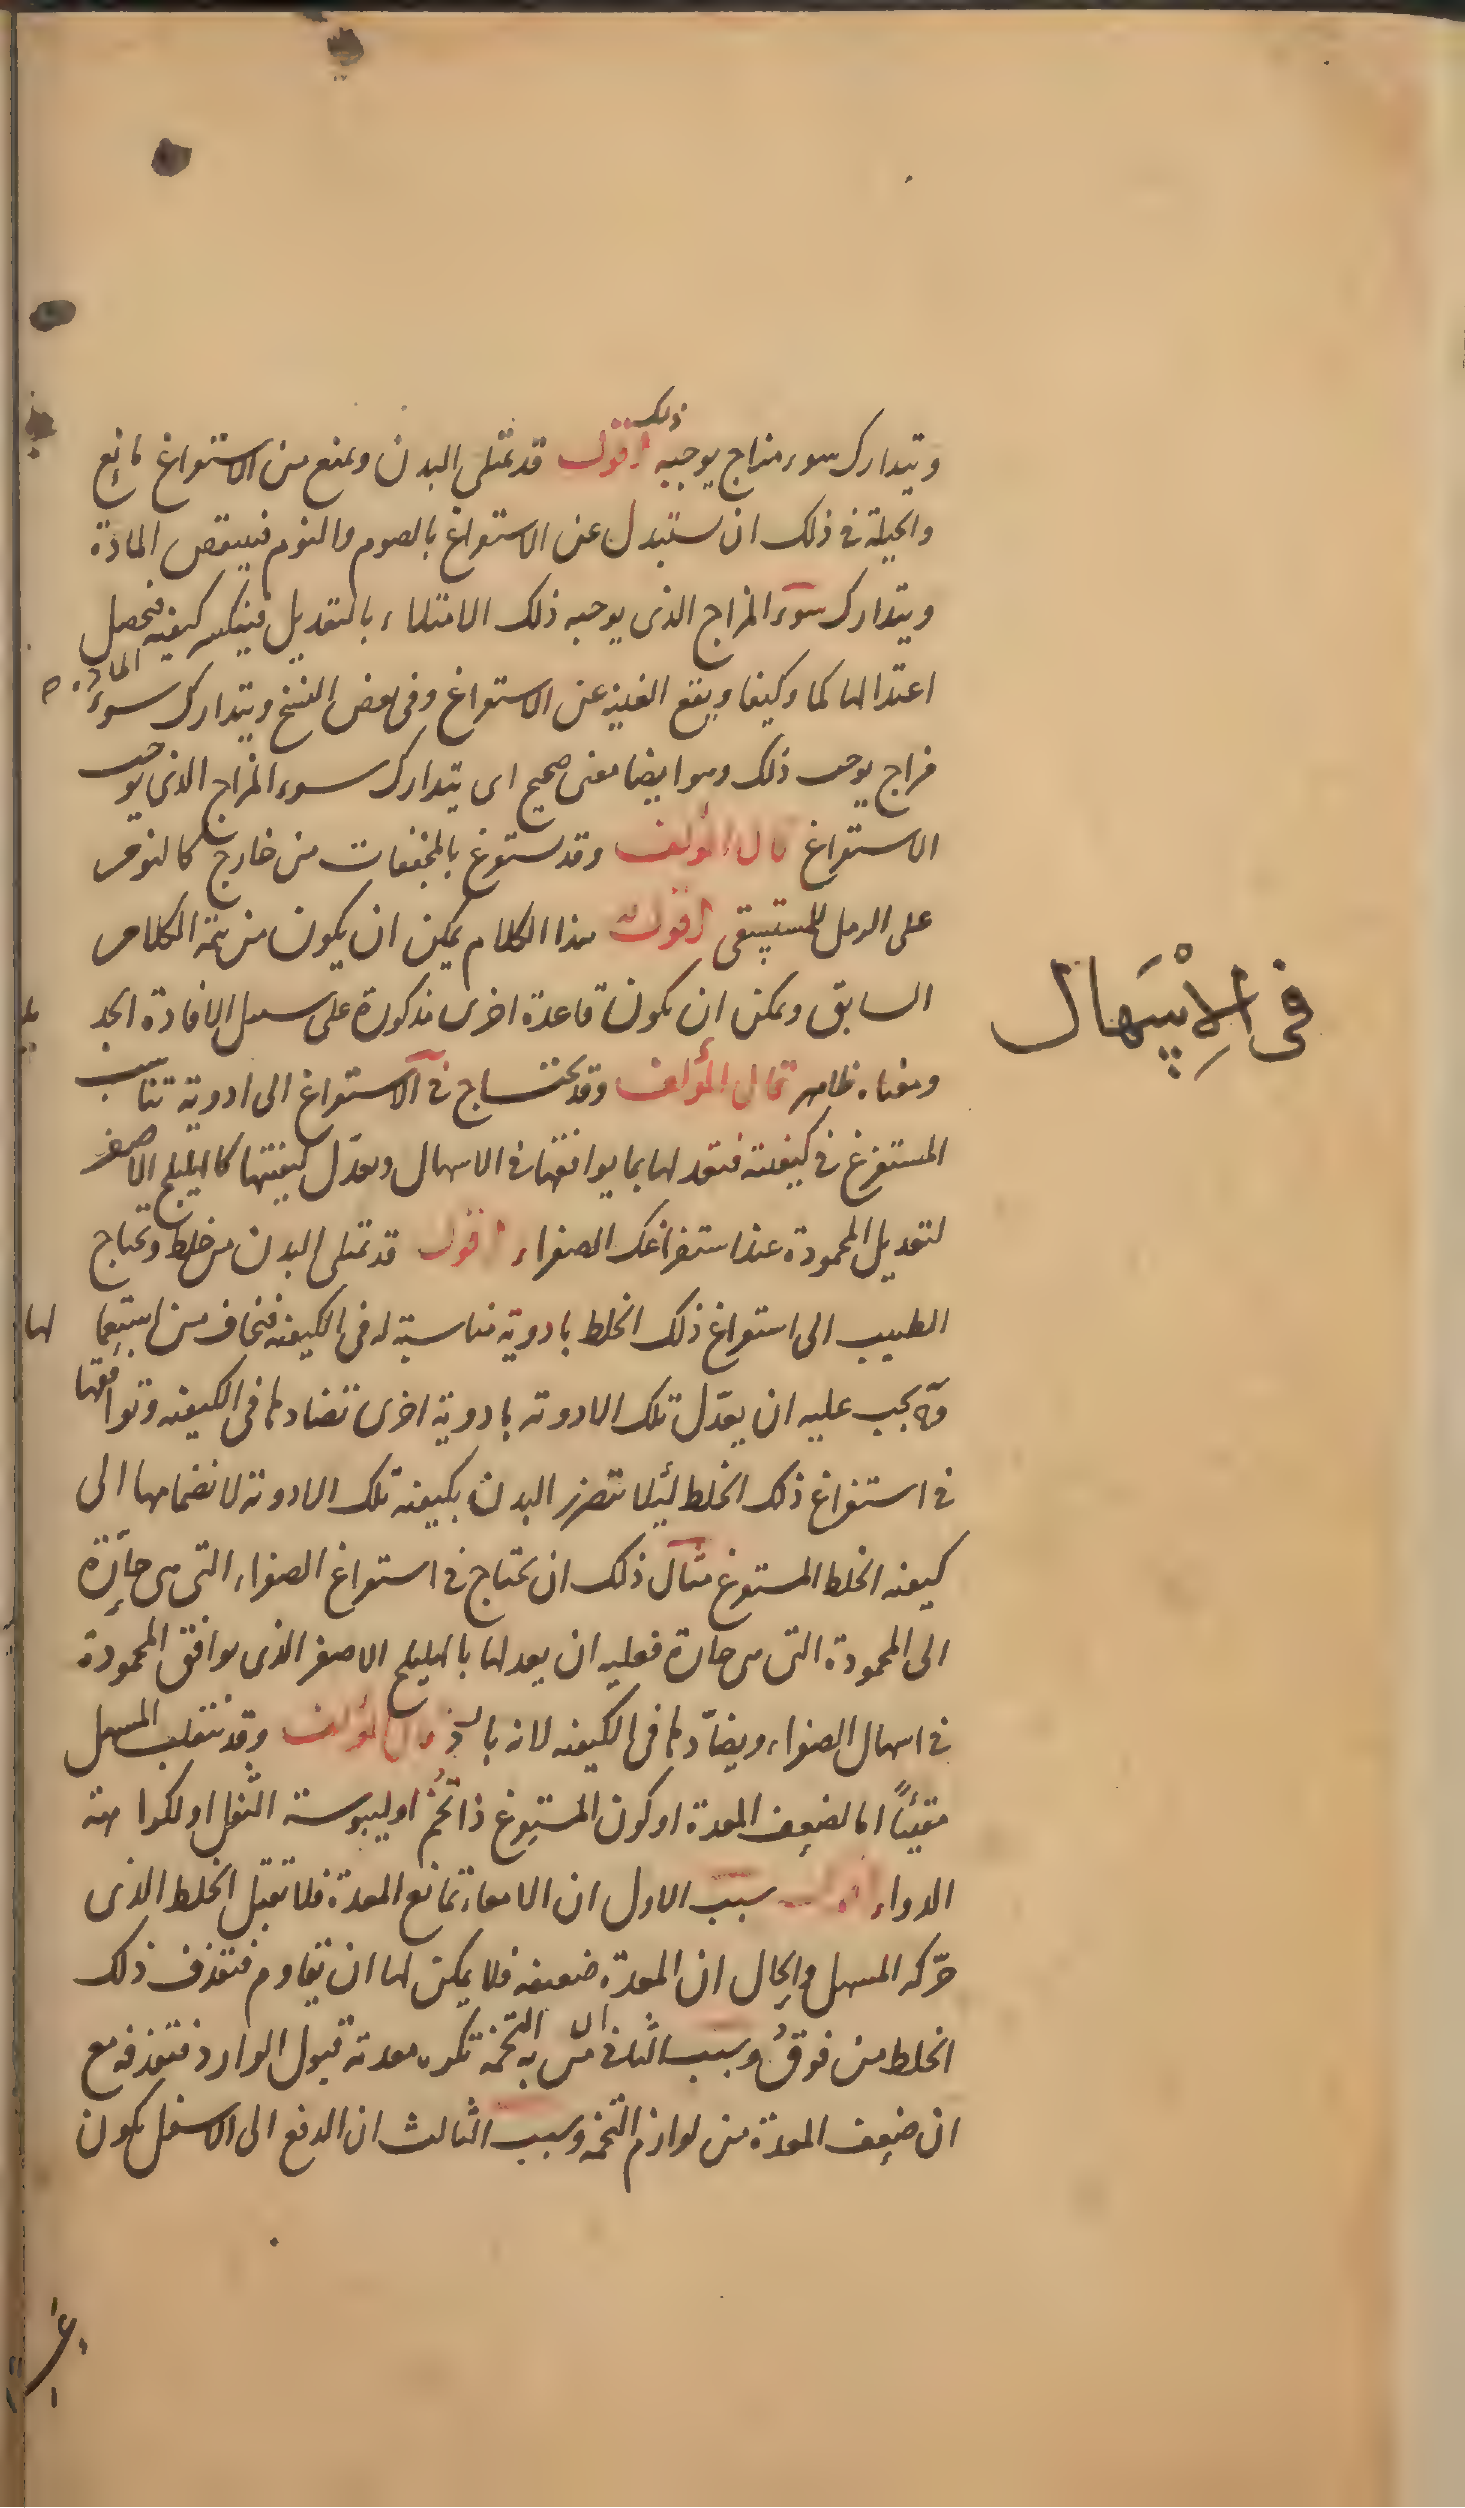 ويتدارك سوء مزاج يوجبه ذلك اقول قد تمتلى البدن ويمنع من الاستفراغ مانع
والحيلة في ذلك ان يستبدل عن الاستفراغ بالصوم والنوم فينتقص المادة
ويتدارك سوء المزاج الذى يوجبه ذلك الامتلاء بالتعديل فينكسر كيفية المادة فيحصل
اعتدالها كما وكيفا ويقع الغنية عن الاستفراغ وفى بعض النسخ ويتدارك سوء
مزاج يوجب ذلك وهو ايضا معنى صحيح اى يتدارك سوء المزاج الذى يوجب
الاستفراغ قال المؤلف وقد يستفرغ بالمجففات من خارج كالنوم
على الرمل للمستسقى اقول هذا الكلام يمكن ان يكون من تتمة الكلام
السابق ويمكن ان يكون قاعدة اخرى مذكورة على سبيل الافادة
ومعناه ظاهر قال المؤلف وقد يحتاج في الاستفراغ الى ادوية تناسب
المستفرغ في كيفيته فتعدلها بما يوافقها في الاسهال ويعدّل كيفيتها كالهليلج الاصفر
لتعديل المحمودة عند استفراغك الصفراء اقول قد تمتلى البدن من خلط ويحتاج
الطبيب الى استفراغ ذلك الخلط بادوية مناسبة له فى الكيفية فيخاف من استعمالها
وح يجب عليه ان يعدّل تلك الادوية بادوية اخرى تضادها فى الكيفية وتوافقها
في استفراغ ذلك الخلط لئلا يتضرر البدن بكيفية تلك الادوية لانضمامها الى
كيفية الخلط المستفرغ مثال ذلك ان يحتاج في استفراغ الصفراء التى هى حارّة
الى المحمودة التى هى حارة فعليه ان يعدلها بالهليلج الاصفر الذى يوافق المحمودة
في اسهال الصفراء ويضادّها فى الكيفية لانه بارد قال المؤلف وقد ينقلب المسهل
مقيئًا اما لضعف المعدة او كون المستفرغ ذا تُخم او ليبوسة الثفل او لكراهة
الدواء اقول سبب الاول ان الامعاء تمانع المعدة فلا تقبل الخلط الذى
حرّكه المسهل والحال ان المعدة ضعيفة فلا يمكن لها ان تقاوم فتقذف ذلك
الخلط من فوق وسبب الثانى ان من به التخمة تكره معدته قبول الوارد فتقذفه مع
ان ضعف المعدة من لوازم التخمة وسبب الثالث ان الدفع الى الاسفل يكون
في الاسهال